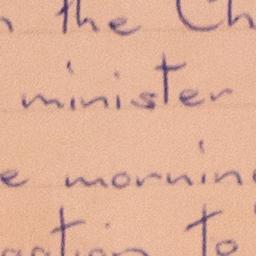 the Ch
minister
e morning
to